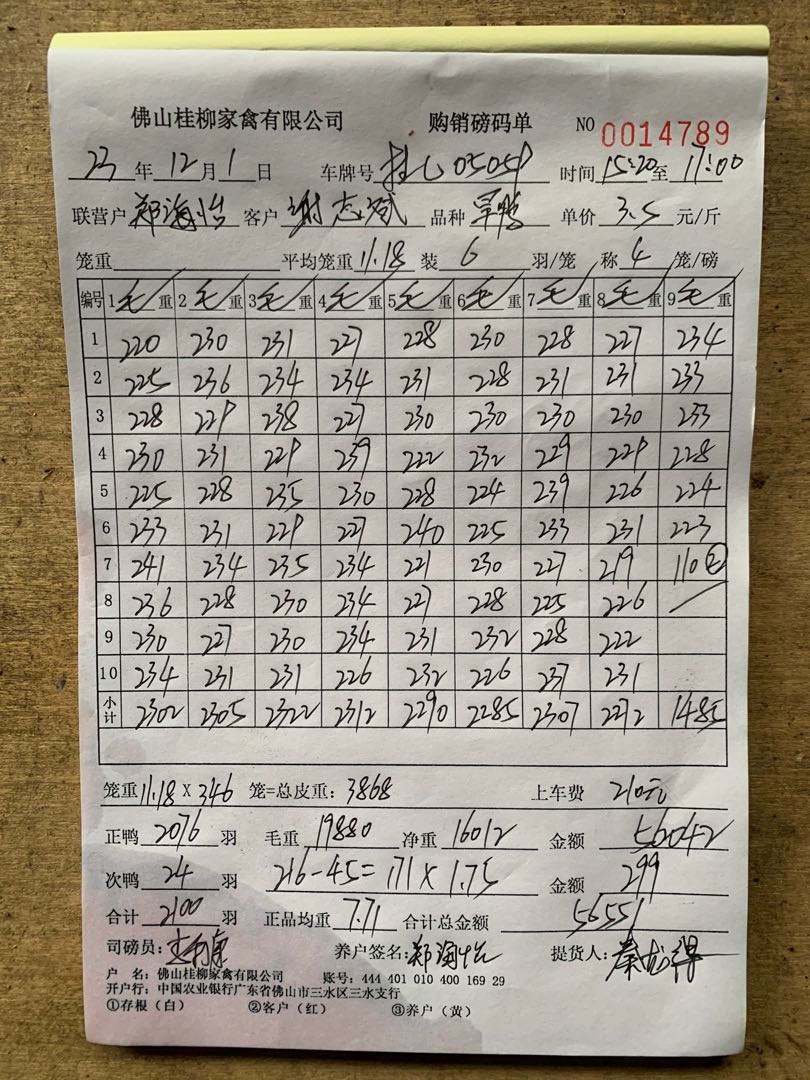 佛山桂柳家禽有限公司 购销磅码单 NO 0014789
23年12月1日 车牌号 05059 时间15:20至17:00
联营户 郑海怡 客户 谢志斌 品种 旱鸭 单价 3.5 元/斤
笼重 平均笼重11.18 装 6 羽/笼 称 4 笼/磅
编号 1毛重 2毛重 3毛重 4毛重 5毛重 6毛重 7毛重 8毛重 9毛重
1 220 230 231 227 228 230 228 227 234
2 225 236 234 234 231 228 231 231 233
3 228 229 238 227 230 230 230 230 233
4 230 231 229 239 222 232 229 229 228
5 225 228 235 230 228 224 239 226 224
6 233 231 229 227 240 225 233 231 223
7 241 234 235 234 221 230 227 219 110②
8 236 228 230 234 227 228 225 226
9 230 227 230 234 231 232 228 222
10 234 231 231 226 232 226 237 231
小计 2302 2305 2322 2312 2290 2285 2307 2272 1485
笼重11.18 X 346 笼=总皮重:3868 上车费 210元
正鸭 2076 羽 毛重 19880 净重 16012 金额 56042
次鸭 24 羽 216-45=171×1.75 金额 299
合计 2100 羽 正品均重 7.71 合计总金额 56551
司磅员: 养户签名:郑海怡 提货人:
户 名:佛山桂柳家禽有限公司 账号:444 401 010 400 169 29
开户行:中国农业银行广东省佛山市三水区三水支行
①存根(白) ②客户(红) ③养户(黄)